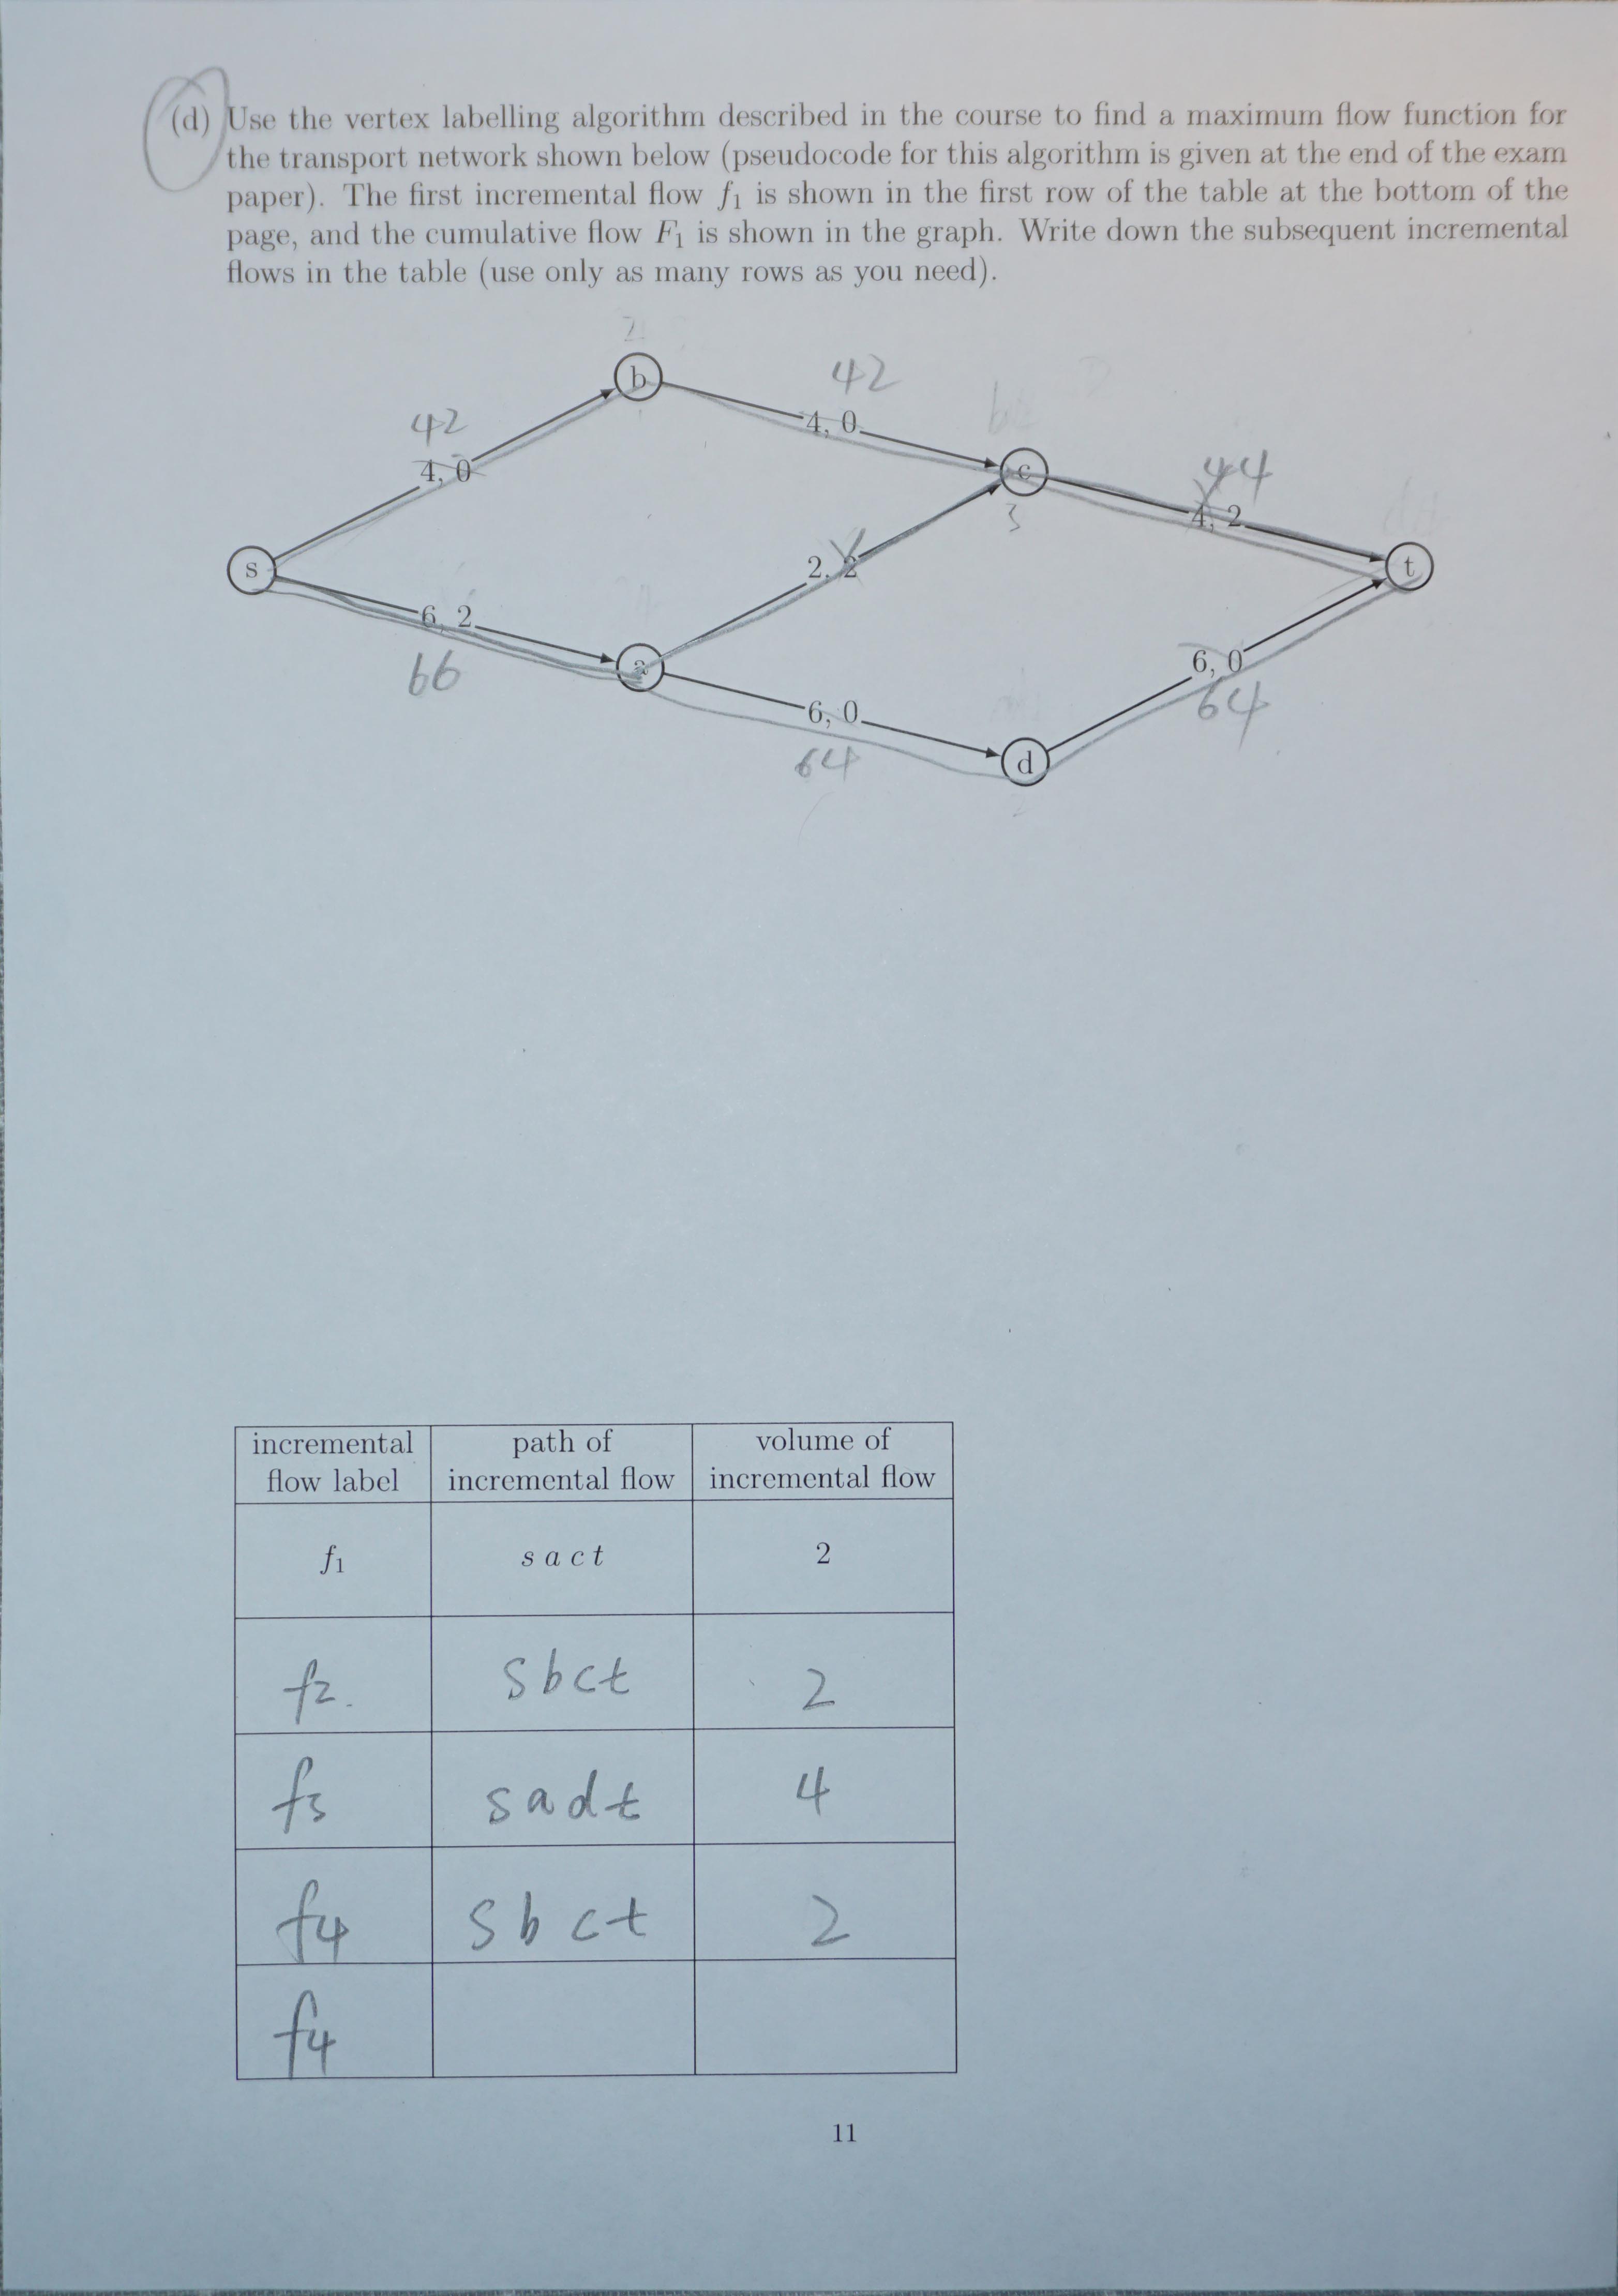 (d) Use the vertex labelling algorithm described in the course to find a maximum flow function for
the transport network shown below (pseudocode for this algorithm is given at the end of the exam
paper). The first incremental flow f₁ is shown in the first row of the table at the bottom of the
page, and the cumulative flow F₁ is shown in the graph. Write down the subsequent incremental
flows in the table (use only as many rows as you need).
2
b
42
4, 0
42
4, 0
c
3
44
4, 2
s
2, 2
t
6, 2
66
a
6, 0
64
6, 0
64
d
incremental flow label
path of incremental flow
volume of incremental flow
f₁ s a c t 2
f2. sbct 2
f3 sadt 4
f4 sbct 2
f4
11